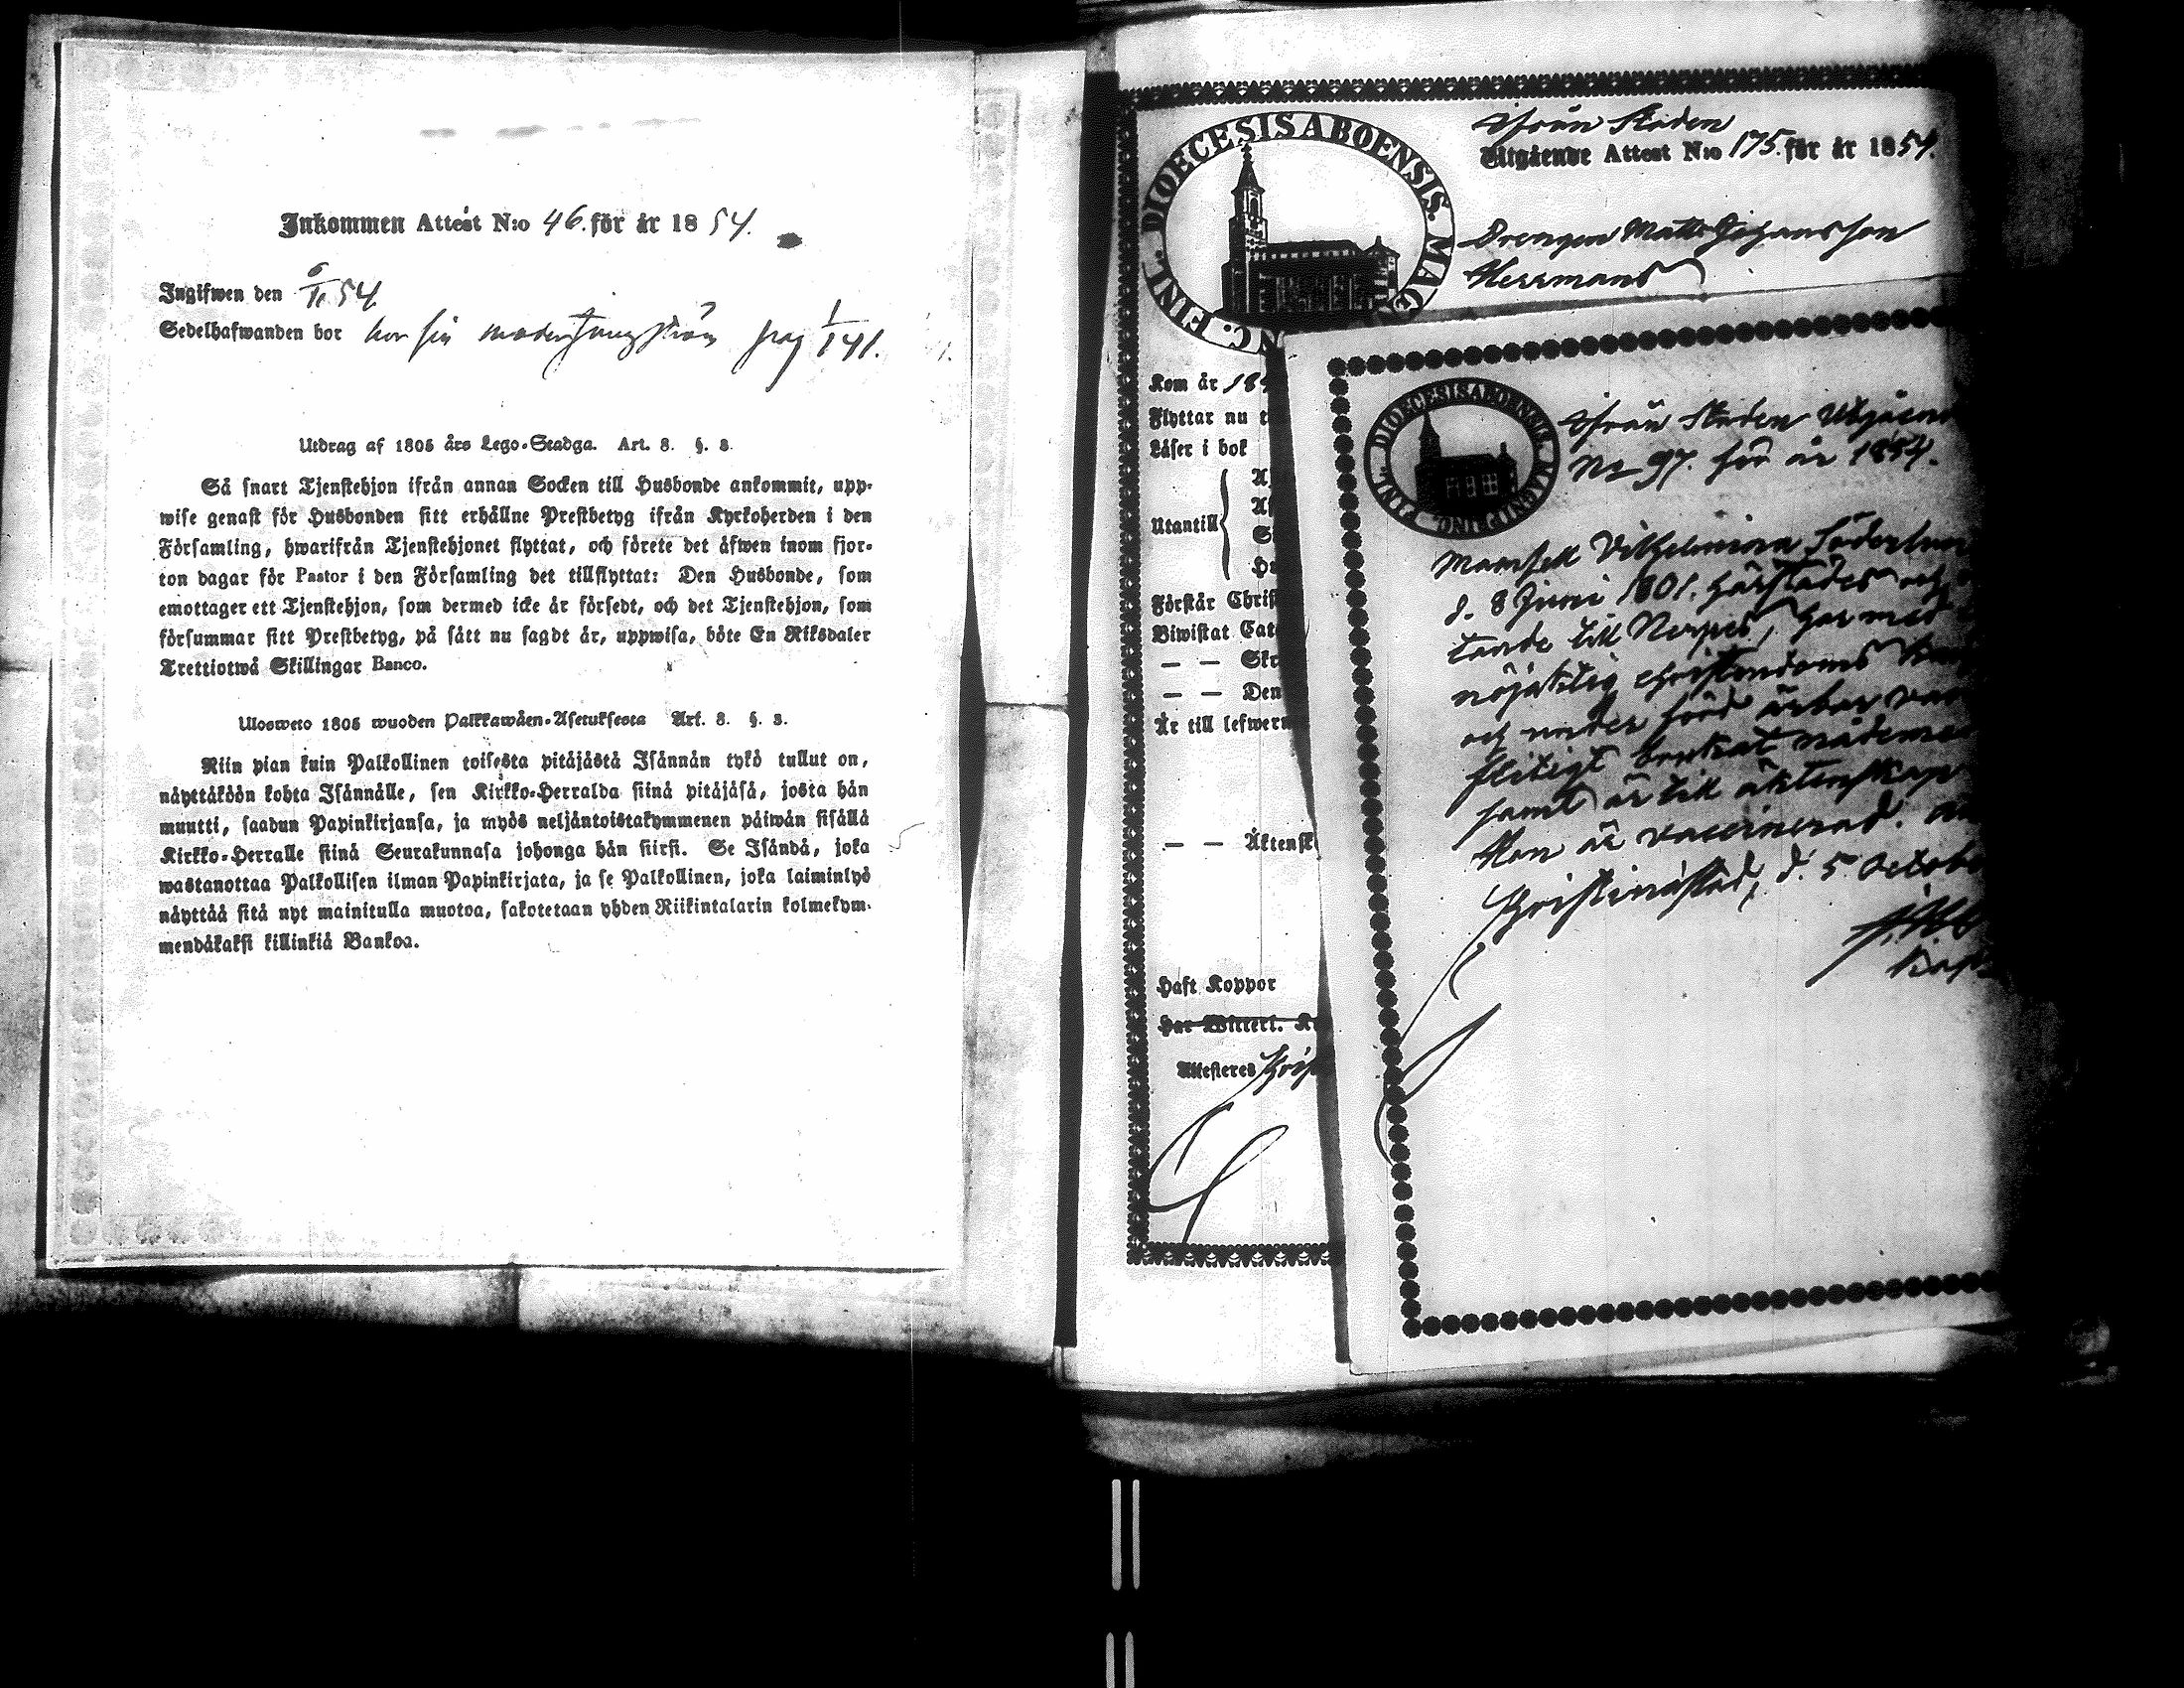 Inkommen Attest N:o 46. för år 1854.
Ingifwen den 6/11 54
Sedelhafwanden bor hos sin moder pag 1/141.
Utdrag af 1805 års Lego-Stadga. Art. 8. §. 8.
Så snart Tjenstehjon ifrån annan Socken till Husbonde ankommit, upp-
wise genast för Husbonden sitt erhållne Prestbetyg ifrån Kyrkoherden i den
Församling, hwarifrån Tjenstehjonet flyttat, och förete det äfwen inom fjor-
ton dagar för Pastor i den Församling det tillflyttat: Den Husbonde, som
emottager ett Tjenstehjon, som dermed icke är försedt, och det Tjenstehjon, som
försummar sitt Prestbetyg, på sätt nu sagdt är, uppwisa, böte En Riksdaler
Trettiotwå Skillingar Banco.
Ulosweto 1805 wuoden Palkkawäen-Asetuksesta Art. 8. §. 8.
Niin pian kuin Palkollinen toisesta pitäjästä Isännän tykö tullut on,
näyttäköön kohta Isännälle, sen Kirkko-Herralda siinä pitäjäsä, josta hän
muutti, saadun Papinkirjansa, ja myös neljäntoistakymmenen päiwän sisällä
Kirkko-Herralle siinä Seurakunnasa johonga hän siirsi. Se Isändä, joka
wastanottaa Palkollisen ilman Papinkirjata, ja se Palkollinen, joka laiminlyö
näyttää sitä nyt mainitulla muotoa, sakotetaan yhden Riikintalarin kolmekym-
mendäkaksi killinkiä Bankoa.
DIOECESIS ABOENSIS. MAG NC. FINL.
Ifrån Staden
Utgående Attest N:o 175. för år 1854.
Drengen Matts Johansson
Herrmans
Kom år 18
Flyttar nu t
Läser i bok
Utantill
Förstår Christ
Biwistat Cat
— — Skr
— — Den
Är till lefwern
— — Äktensk
Haft Koppor
Har Witterl. K
Attesteres Christ
DIOECESIS ABOENSIS. MAGNI DUC. FINL.
Ifrån Staden Utgåen
No 97. för år 1854.
Mamsell Vilhelmina
d. 8 Juni 1801. härstädes och
tande till Nerpes, har med
nöjaktig christendoms kun
och under förd ärbar van
flitigt brukat nådemed
samt är till äktenskap
Hon är vaccinerad.
Christinestad, d. 5 Octobe